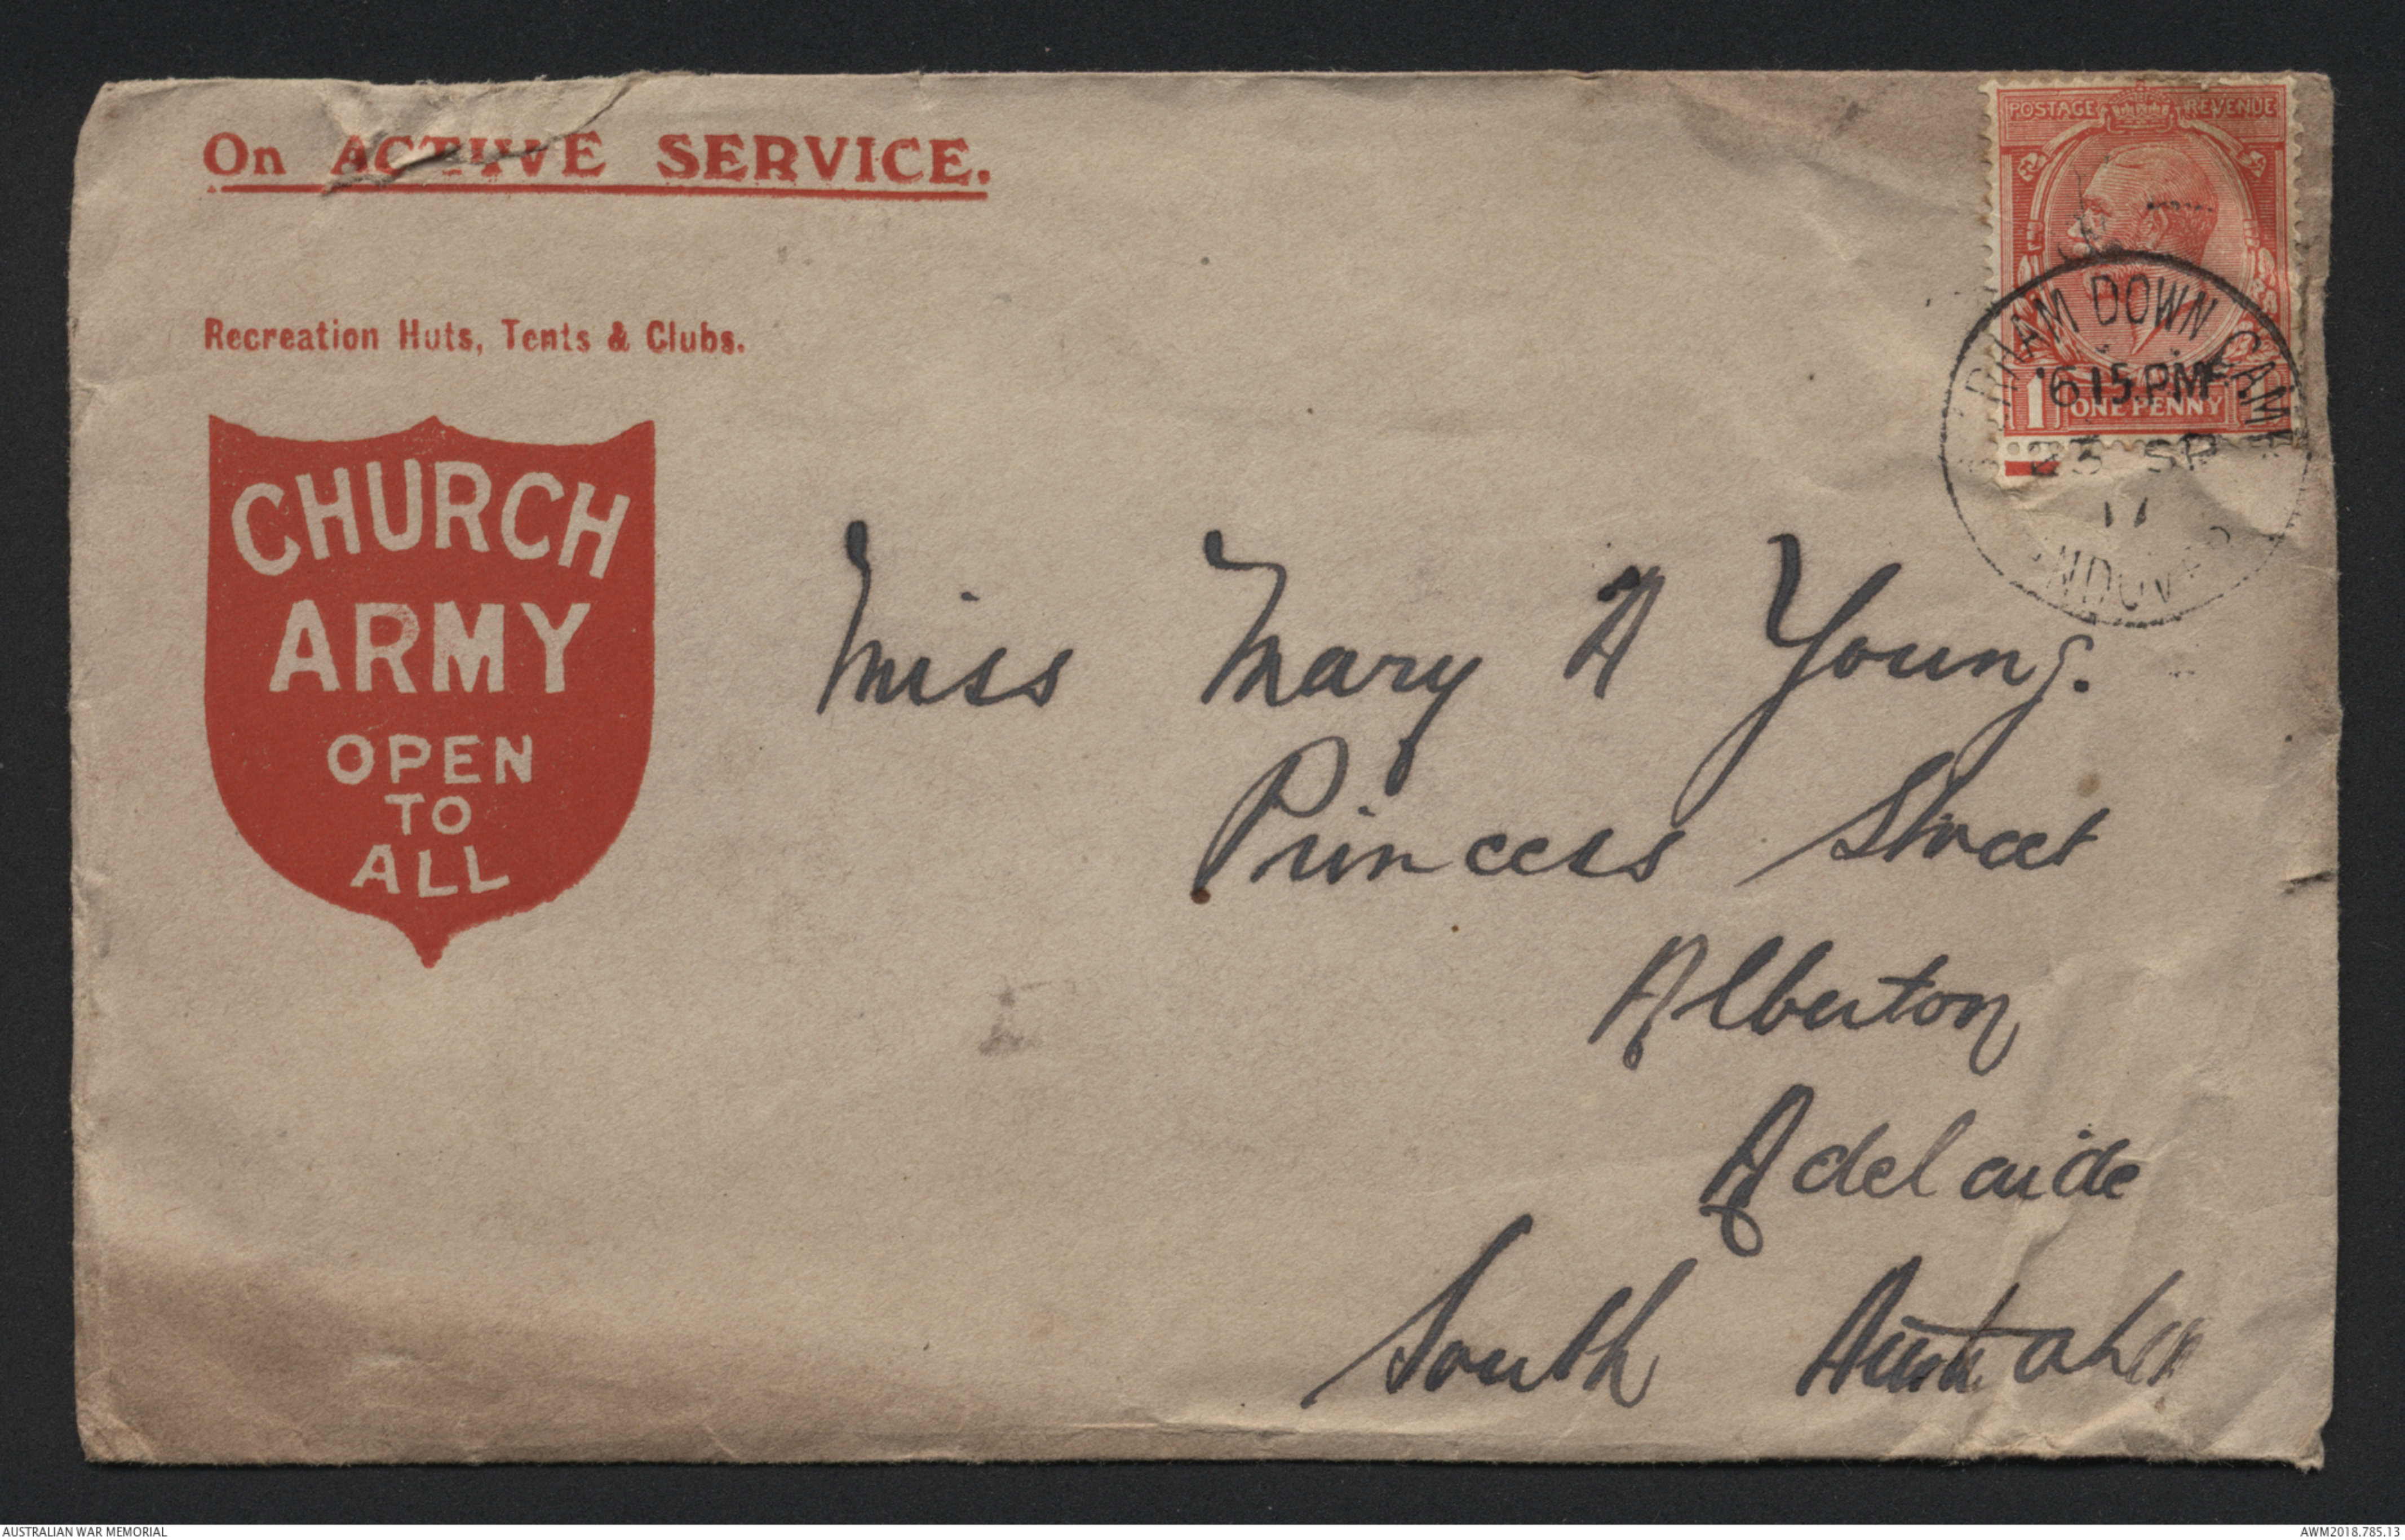 On ACTIVE SERVICE.
Recreation Huts, Tents & Clubs.
CHURCH
ARMY
OPEN
TO
ALL
POSTAGE REVENUE
DOWN CAMP
6 15 PM
1 ONE PENNY
23 SP
17
Miss Mary A Young.
Princess Street
Alberton
Adelaide
South Australia
AUSTRALIAN WAR MEMORIAL
AWM2018.785.13